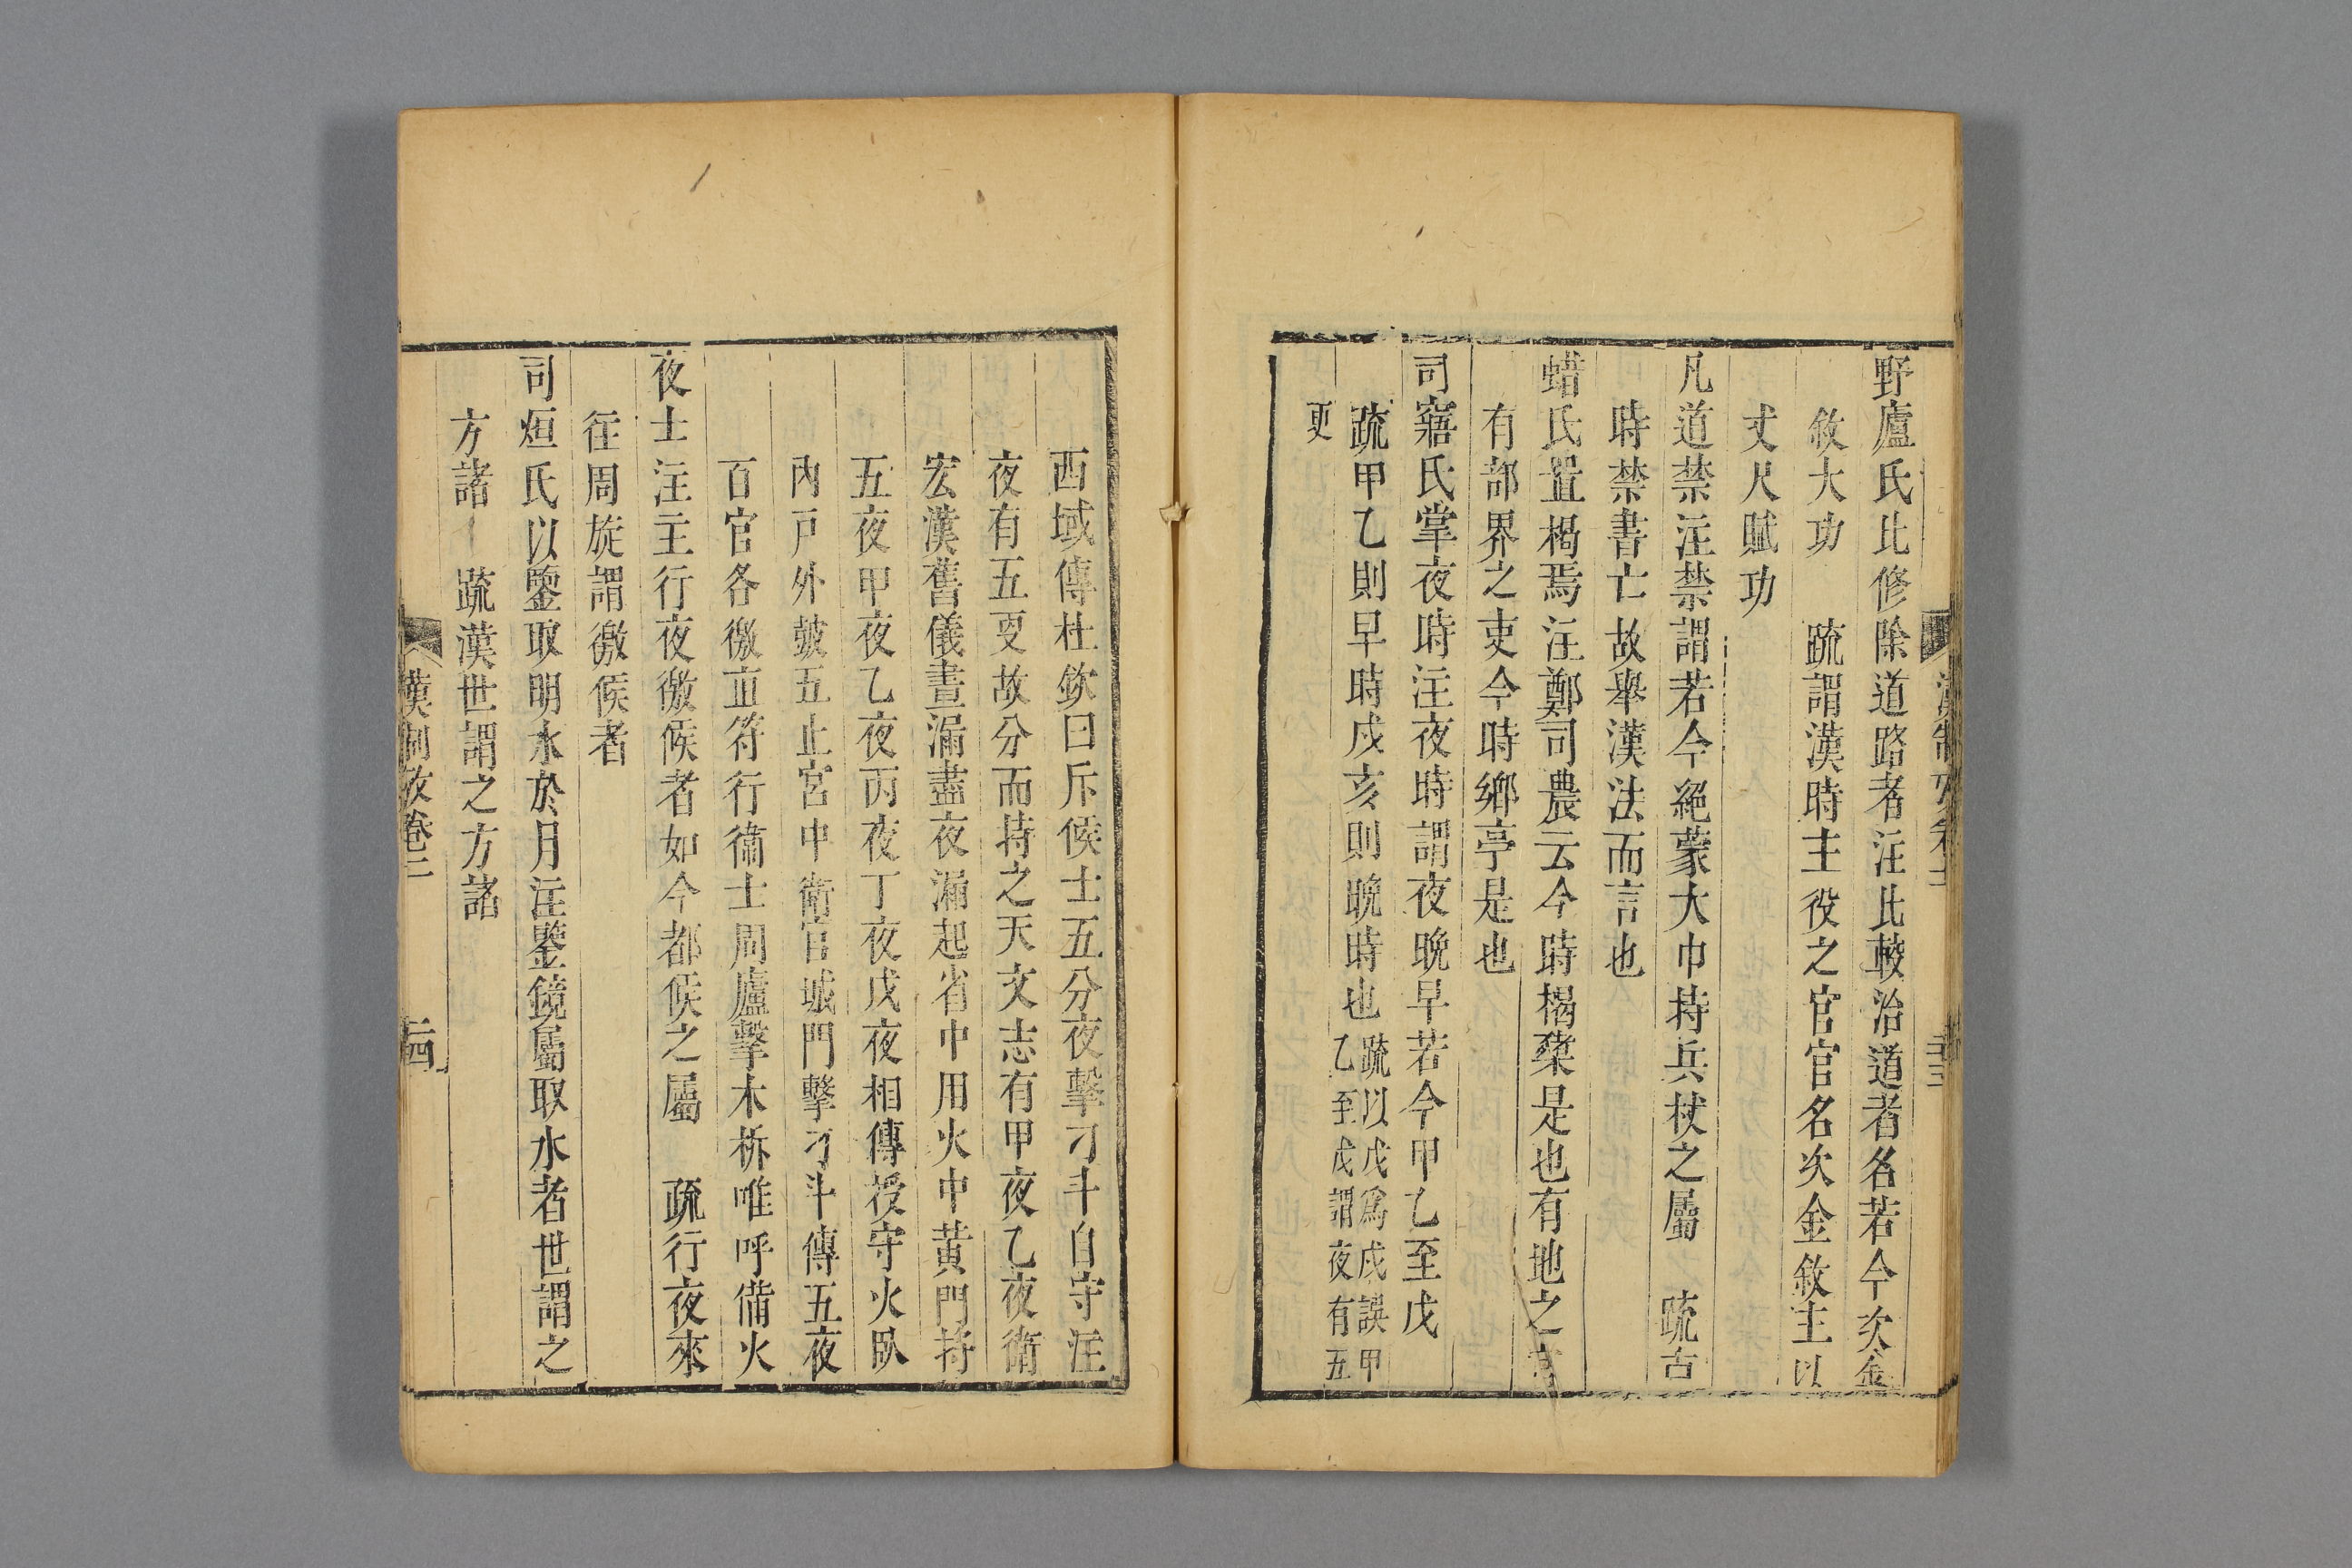 野廬氏比修除道路者注比較治道者名若今次金
敘大功　疏謂漢時主役之官官名次金敘主以
丈尺賦功
凡道禁注禁謂若今絕蒙大巾持兵杖之屬　疏古
時禁書亡故舉漢法而言也
蜡氏置楬焉注鄭司農云今時楬櫫是也有地之官
有部界之吏今時鄉亭是也
司寤氏掌夜時注夜時謂夜晚早若今甲乙至戊
疏甲乙則早時戌亥則晚時也疏以戊爲戌誤甲
乙至戊謂夜有五
更
西域傳杜欽曰斥候士五分夜擊刁斗自守注
夜有五更故分而持之天文志有甲夜乙夜衛
宏漢舊儀晝漏盡夜漏起省中用火中黃門持
五夜甲夜乙夜丙夜丁夜戊夜相傳授守火臥
內戸外鼓五止宮中衛官城門擊刁斗傳五夜
百官各徼直符行衛士周廬擊木柝唯呼備火
夜士注主行夜徼候者如今都候之屬　疏行夜來
徃周旋謂徼候者
司烜氏以鑒取明水於月注鑒鏡屬取水者世謂之
方諸　疏漢世謂之方諸
漢制攷卷二
二四